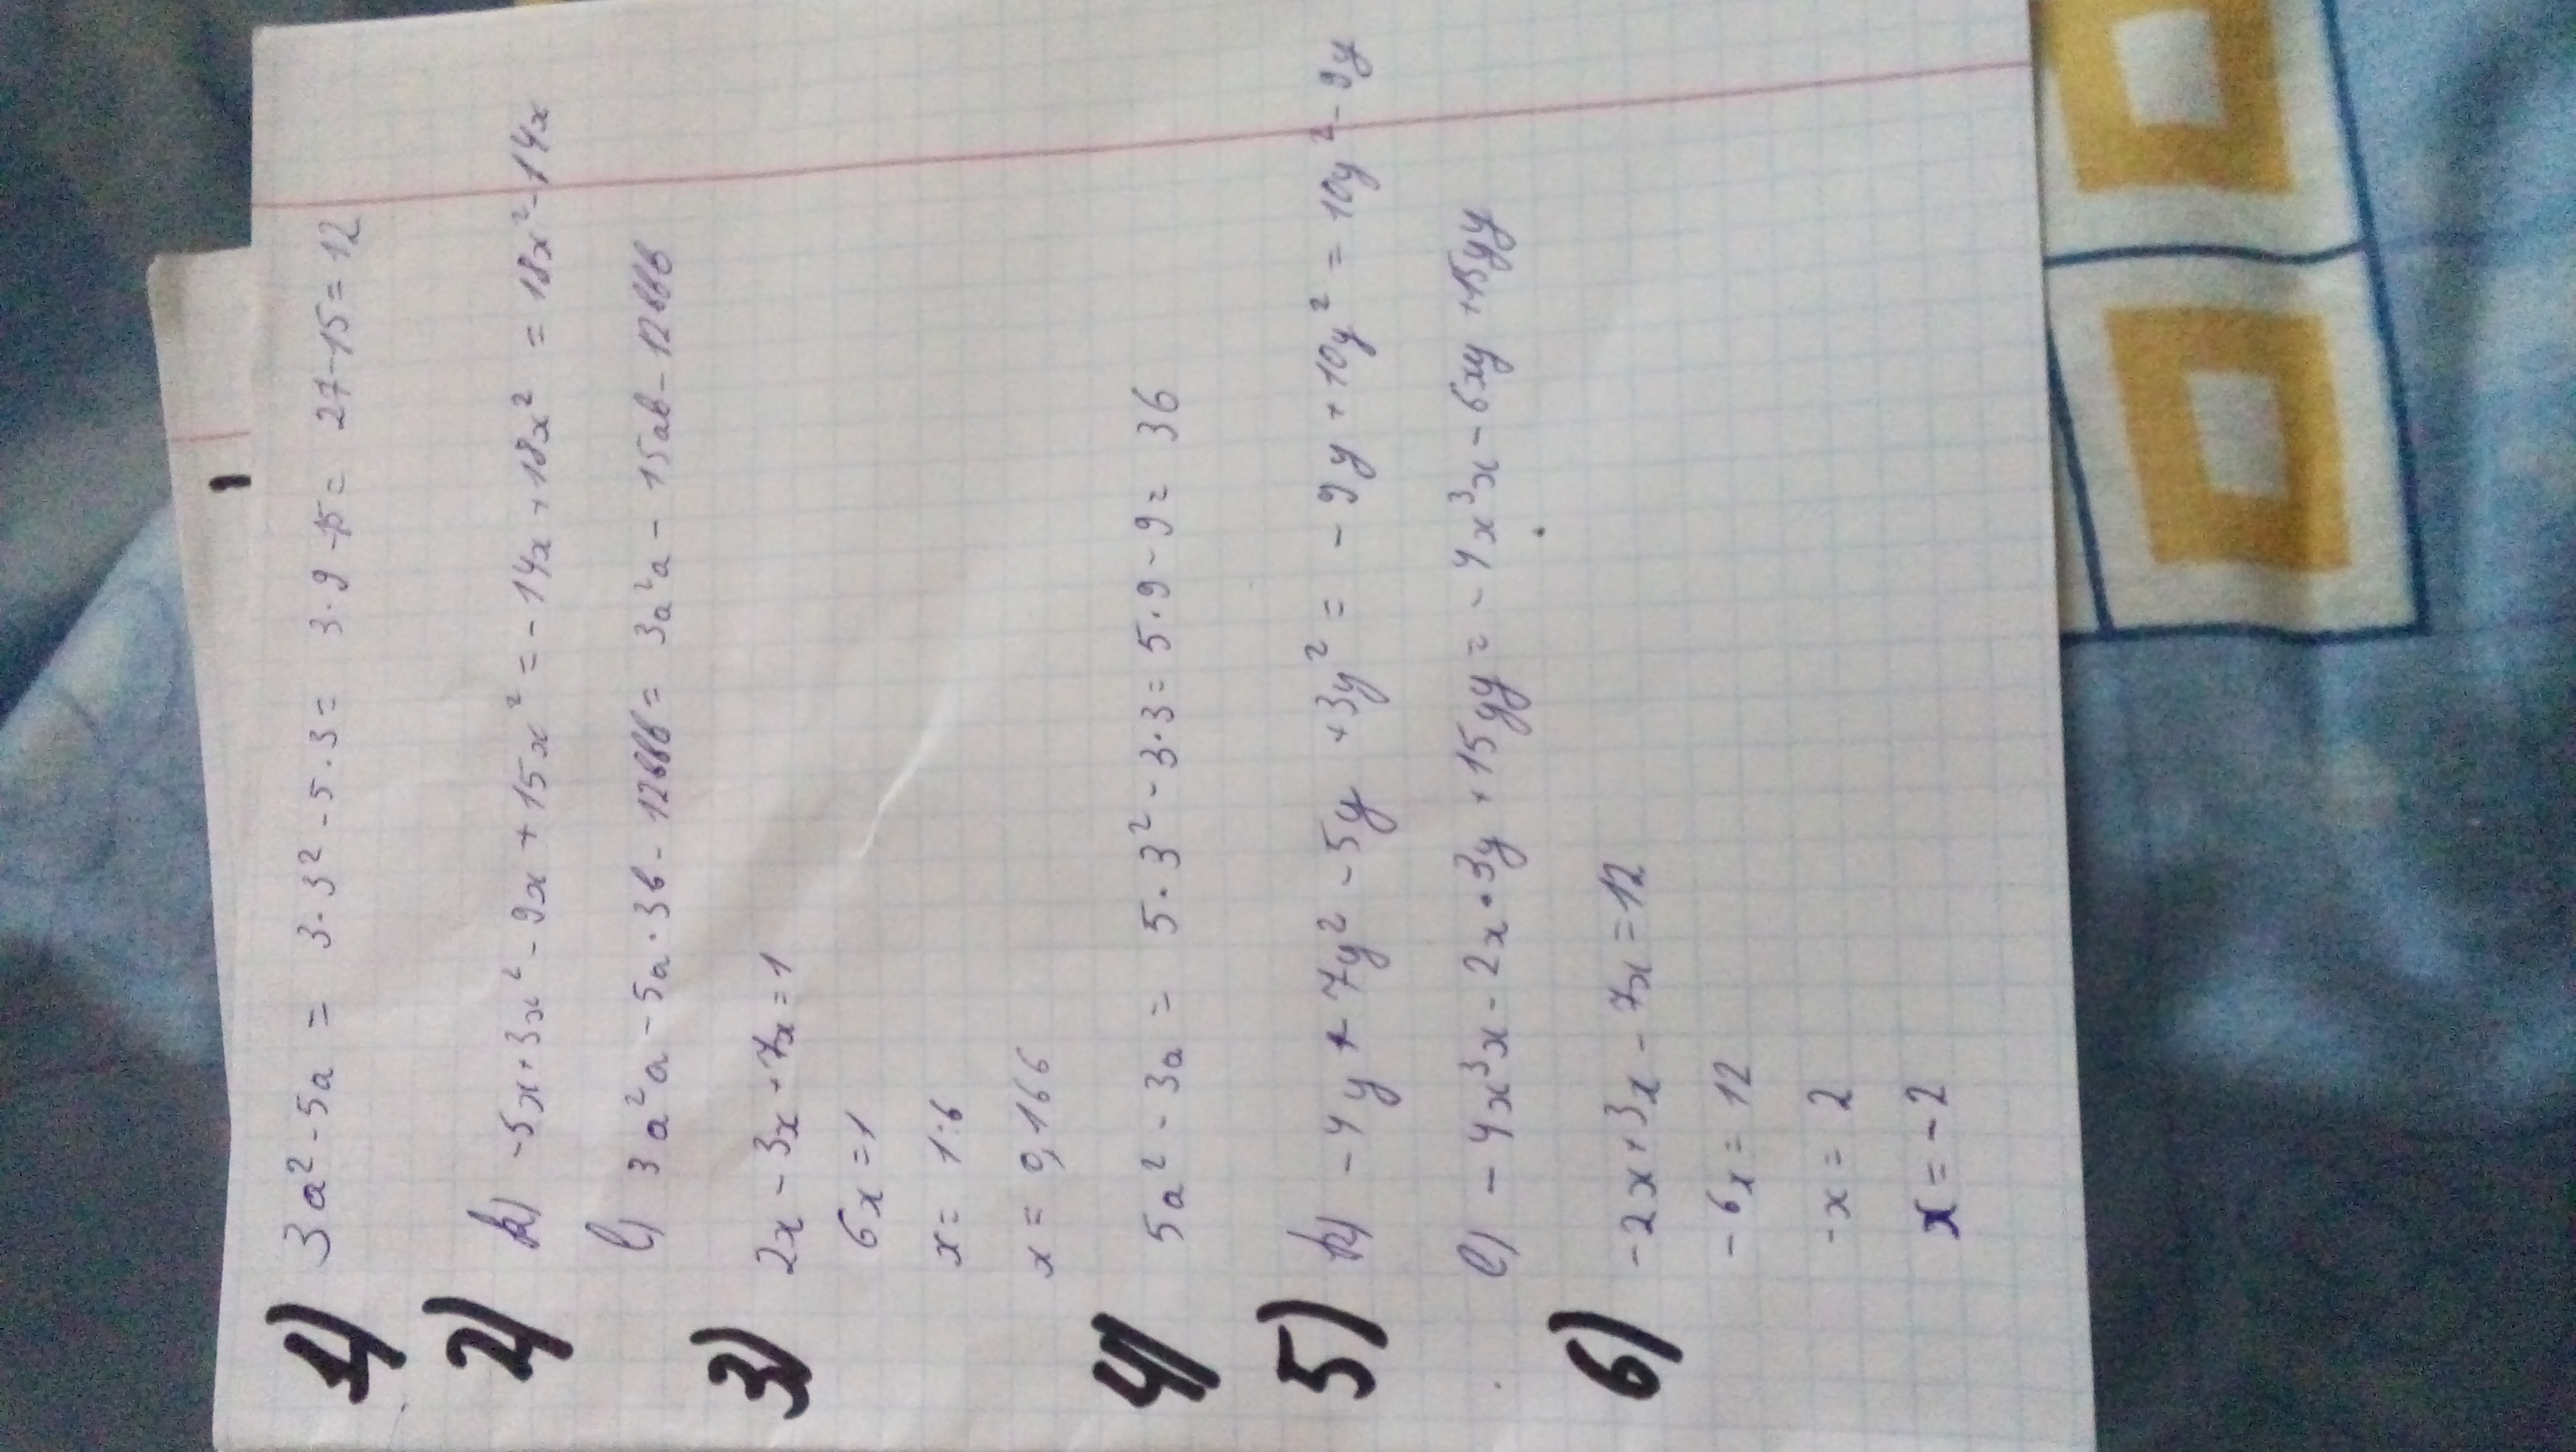 1) 3a² - 5a = 3·3² - 5·3 = 3·9 - 15 = 27 - 15 = 12
2) к) -5x + 3x² - 9x + 15x² = -14x + 18x² = 18x² - 14x
е) 3a²a - 5a·3в - 12ввв = 3a²a - 15aв - 12ввв
3) 2x - 3x + 7x = 1
6x = 1
x = 1:6
x = 0,166
4) 5a² - 3a = 5·3² - 3·3 = 5·9 - 9 = 36
5) к) -4y + 7y² - 5y + 3y² = -9y + 10y² = 10y² - 9y
е) -4x³x - 2x·3y + 15yy = -4x³x - 6xy + 15yy
6) -2x + 3x - 7x = 12
-6x = 12
-x = 2
x = -2